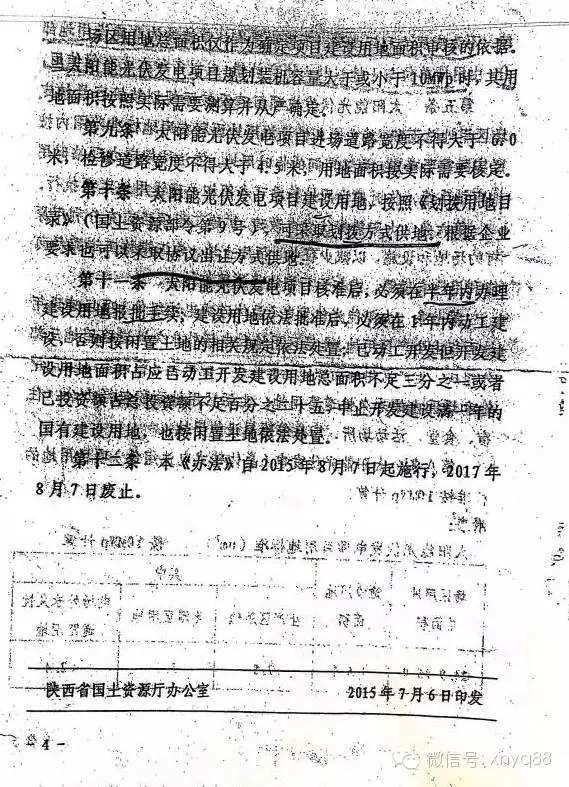 场区用地总面积仅作为确定项目建设用地面积审核的依据。
当太阳能光伏发电项目规划装机容量大于或小于10MWp时，其用
地面积按照实际需要测算并从严确定。
第九条 太阳能光伏发电项目进场道路宽度不得大于6.0
米，检修道路宽度不得大于4.5米，用地面积按实际需要核定。
第十条 太阳能光伏发电项目建设用地，按照《划拨用地目
录》（国土资源部令第9号），可采取划拨方式供地。根据企业
要求也可以采取协议出让方式供地。
第十一条 太阳能光伏发电项目核准后，必须在半年内办理
建设用地报批手续，建设用地依法批准后，必须在1年内动工建
设，否则按闲置土地的相关规定依法处置；已动工开发但开发建
设用地面积占应已动工开发建设用地总面积不足三分之一或者
已投资额占总投资额不足百分之二十五，中止开发建设满一年的
国有建设用地，也按闲置土地依法处置。
第十二条 本《办法》自2015年8月7日起施行，2017年
8月7日废止。
陕西省国土资源厅办公室 2015年7月6日印发
4 -
微信号: xnyq88